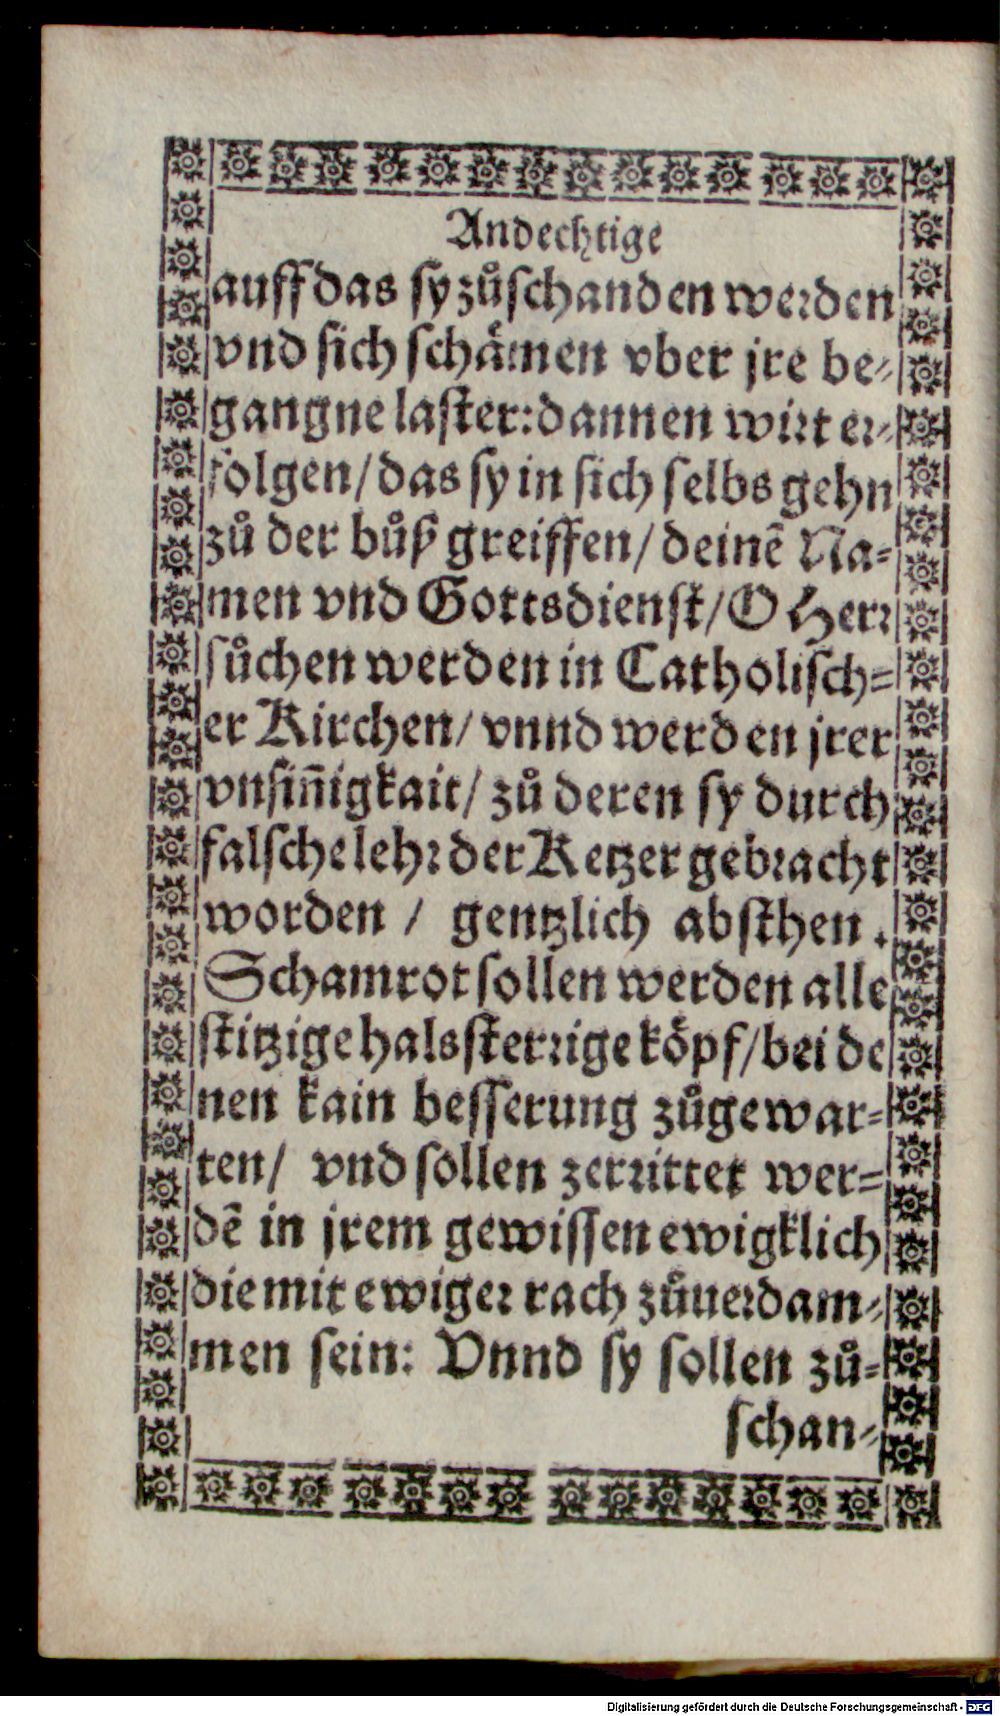 Andechtige
auff das sy zůschanden werden
vnd sich schåmen vber jre be-
gangne laster: dannen wirt er-
folgen/ das sy in sich selbs gehn
zů der bůß greiffen/ deinē Na-
men vnd Gottsdienst/ O Herr
sůchen werden in Catholisch-
er Kirchen/ vnnd werden jrer
vnsiñigkait/ zů deren sy durch
falsche lehr der Ketzer gebracht
worden / gentzlich absthen.
Schamrot sollen werden alle
stitzige halssterrige köpf/ bei de
nen kain besserung zůgewar-
ten/ vnd sollen zerrittet wer-
dē in jrem gewissen ewigklich
die mit ewiger rach zůuerdam-
men sein: Vnnd sy sollen zů-
schan-
Digitalisierung gefördert durch die Deutsche Forschungsgemeinschaft - DFG